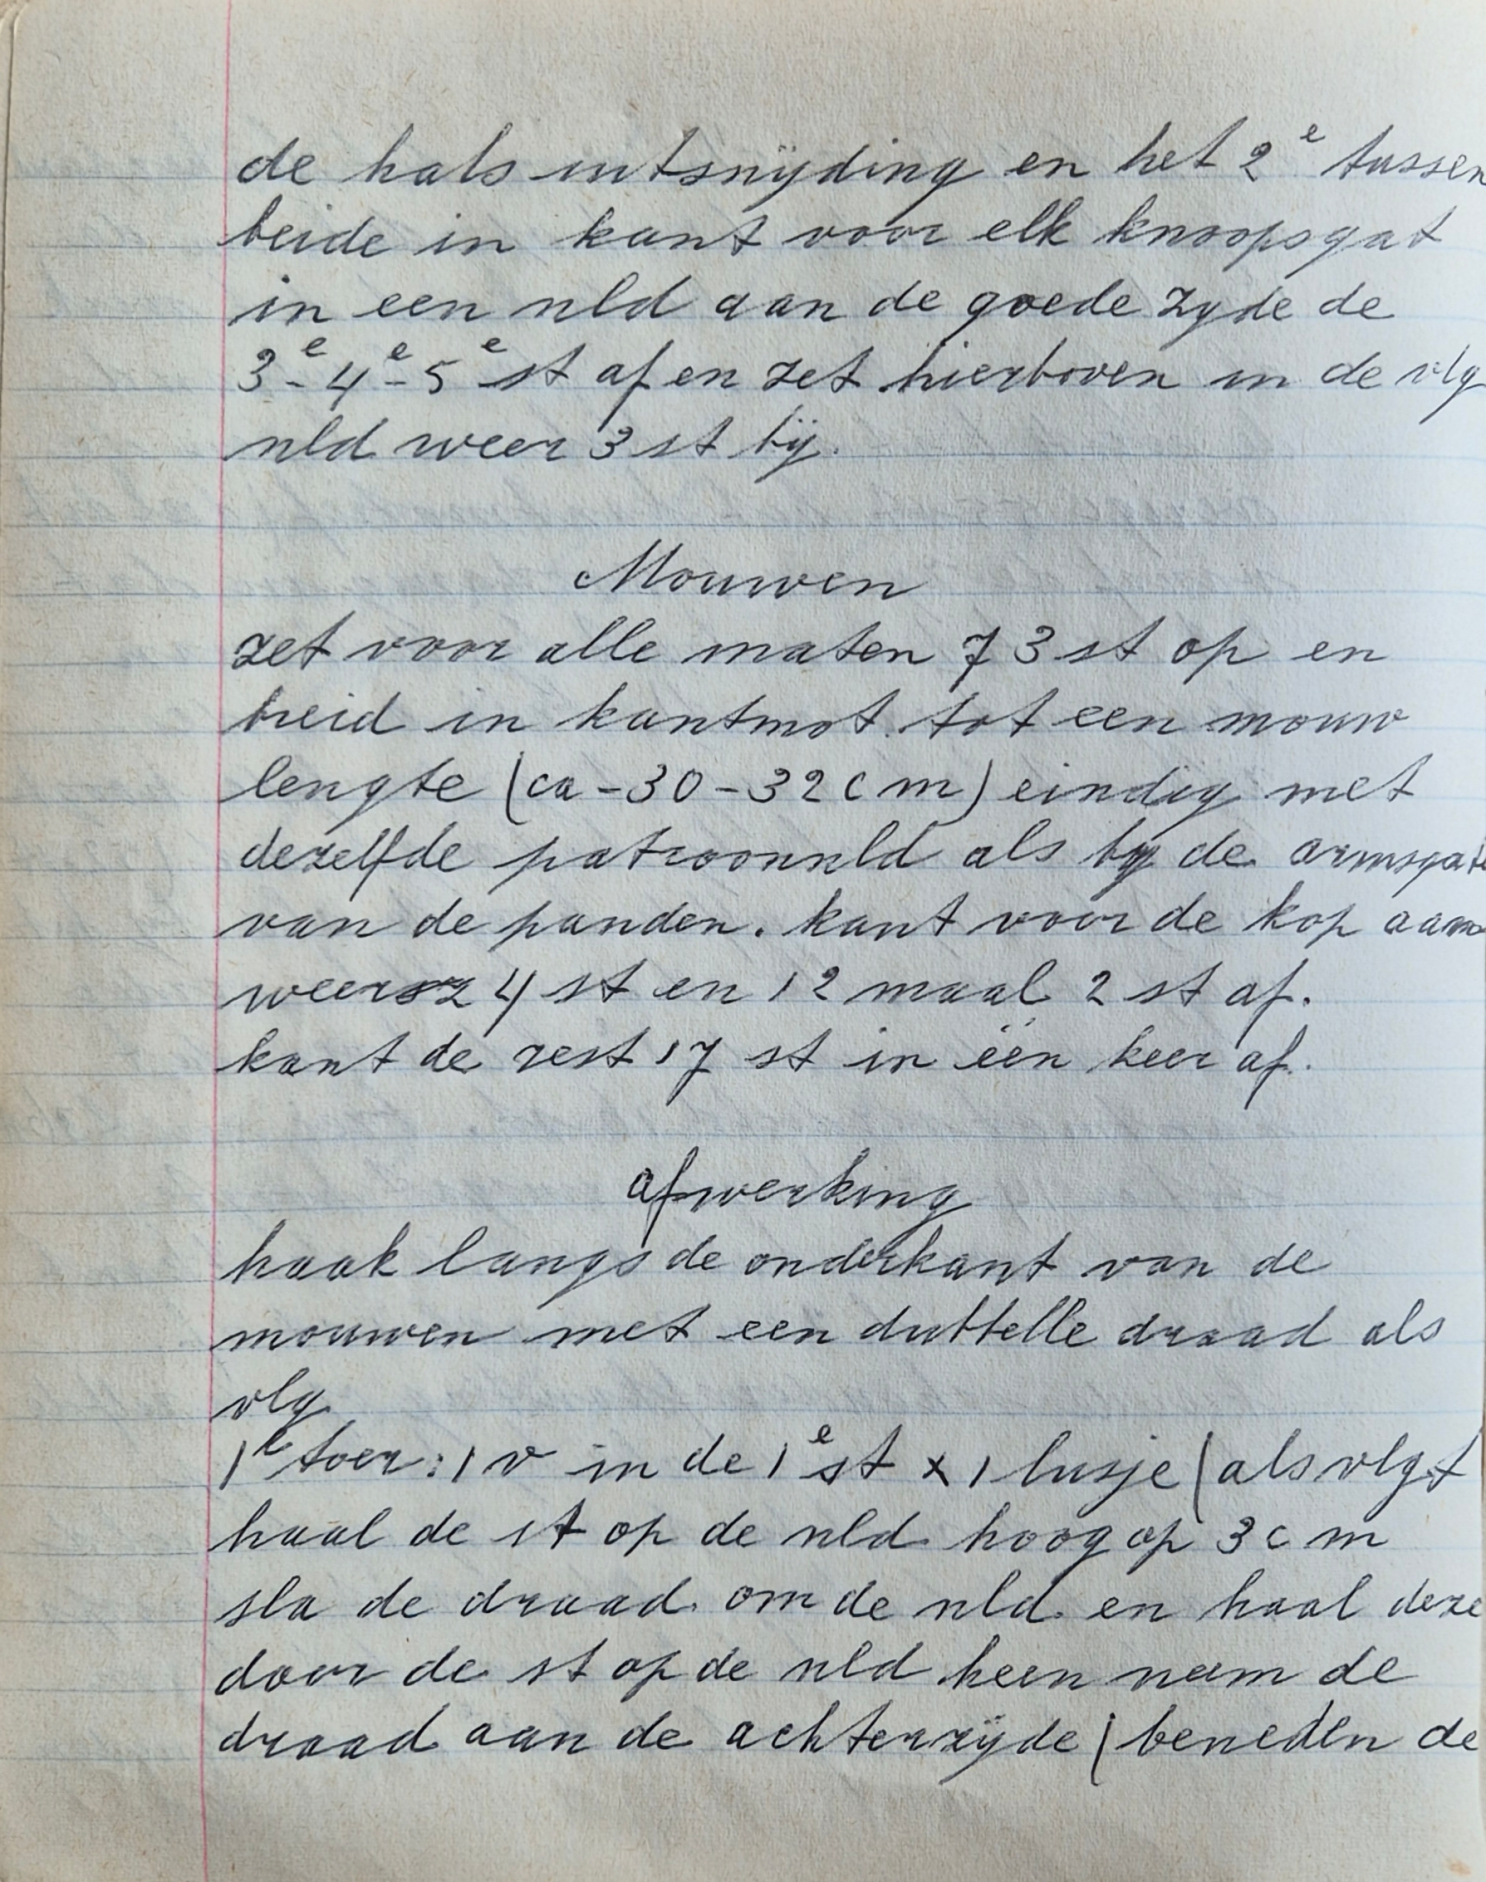 de hals uitsnÿding en het 2e tussen
beide in kant voor elk knoopsgat
in een nld aan de goede zyde de
3e - 4e - 5e st af en zet hierboven in de vlg
nld weer 3 st bÿ.
Mouwen
zet voor alle maten 73 st op en
breid in kantmot. tot een mouw
lengte (ca - 30 - 32 cm) eindig met
dezelfde patroonnld als by de armsgate
van de panden. kant voor de kop aan
weersz 4 st en 12 maal 2 st af.
kant de rest 17 st in één keer af.
afwerking
haak langs de onderkant van de
mouwen met een dubbelle draad als
vlg
1e toer: 1 v in de 1e st x 1 lusje (als vlgt
haal de st op de nld hoog op 3 cm
sla de draad om de nld en haal deze
door de st op de nld heen neem de
draad aan de achterzÿde (beneden de